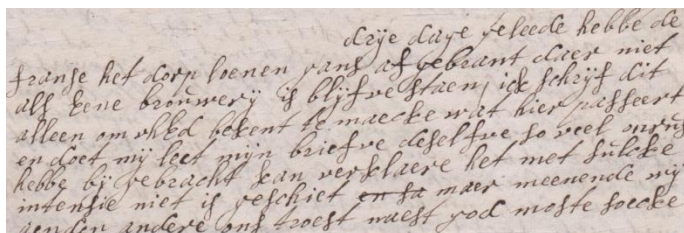 drije dage geleede hebbe de
franse het dorp loenen gans af gebrant daer niet
als eene brouwerij is blijfve staen, ick schrijf dit
alleen om uEd bekent te maecke wat hier passeert
en doet mij leet mijn briefve deselfve so veel onrust
hebbe bij gebracht kan verklaere het met sulcke
intensie niet is geschiet en sa maer meenende wij
aen den andere ons troest naest god moste soecke